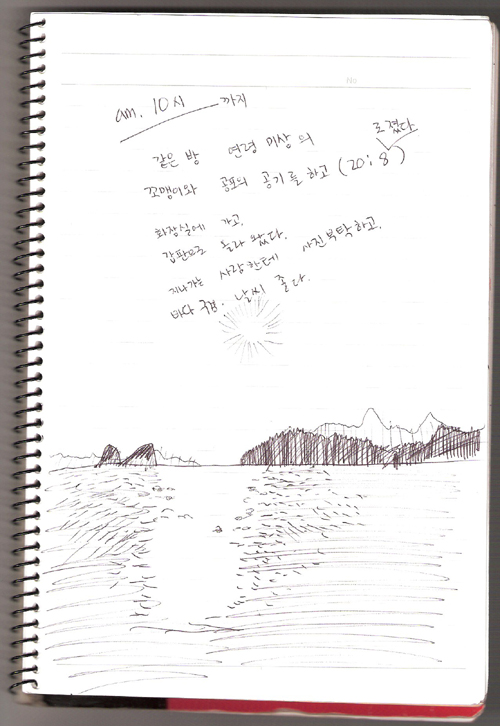 am. 10시 까지
같은 방 연령 미상의
꼬맹이와 공포의 공기를 하고 (20:8)로 졌다
화장실에 가고,
갑판으로 올라 왔다.
지나가는 사람한테 사진 부탁하고.
바다 구경. 날씨 좋다.
No